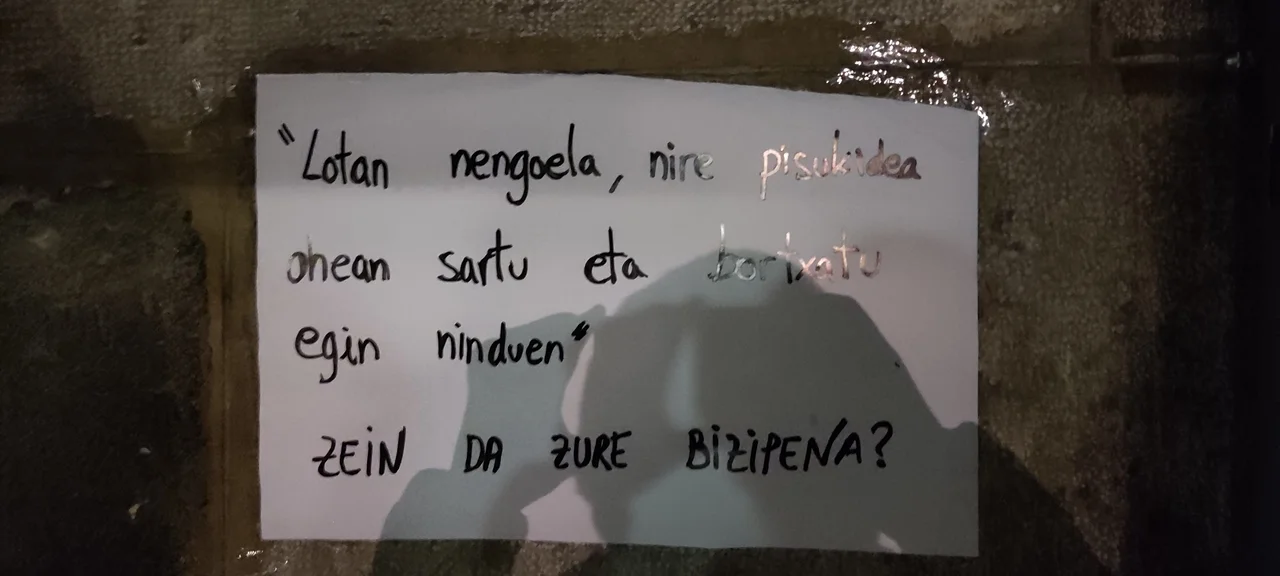 "Lotan nengoela, nire pisukidea
ohean sartu eta bortxatu
egin ninduen"
ZEIN DA ZURE BIZIPENA?